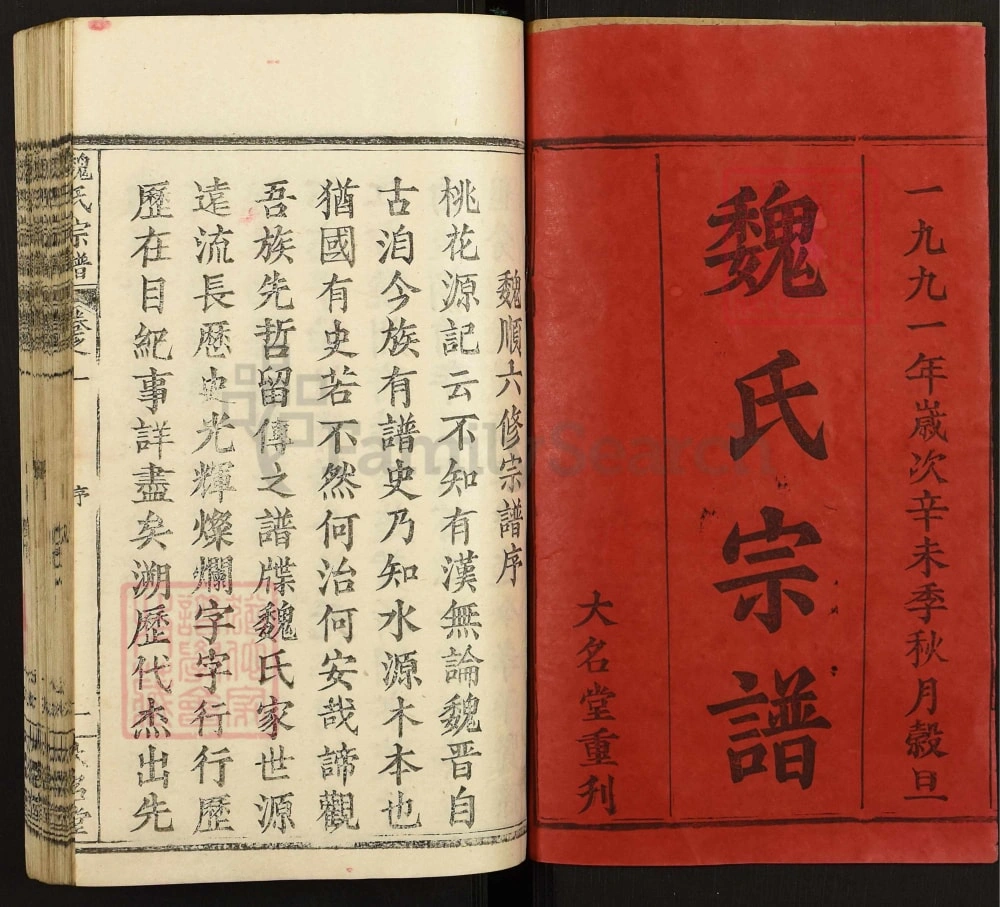 一九九一年歲次辛未季秋月穀旦
魏氏宗譜
大名堂重刋
魏順六修宗譜序
桃花源記云不知有漢無論魏晋自
古洎今族有譜史乃知水源木本也
猶國有史若不然何治何安哉諦觀
吾族先哲留傳之譜牒魏氏家世源
遠流長歷史光輝燦爛字字行行歷
歷在目紀事詳盡矣溯歷代杰出先
魏氏宗譜
卷之一
序
一
大名堂
FamilySearch